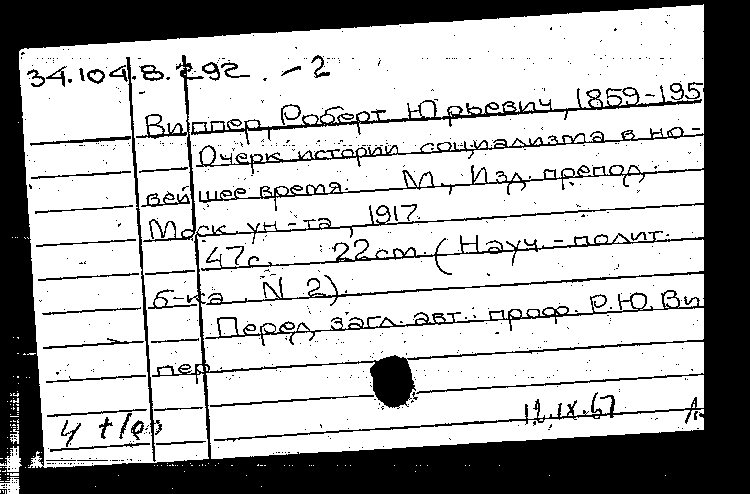 34.104.8.292. -2
Виппер, Роберт Юрьевич, 1859-195
Очерк истории социализма в но-
вейшее время. М., Изд. препод.
Моск. ун-та, 1917.
47с. 22см. (Науч.-полит.
б-ка. N 2).
Перед загл. авт.: проф. Р.Ю. Ви
пер.
12.IX.67